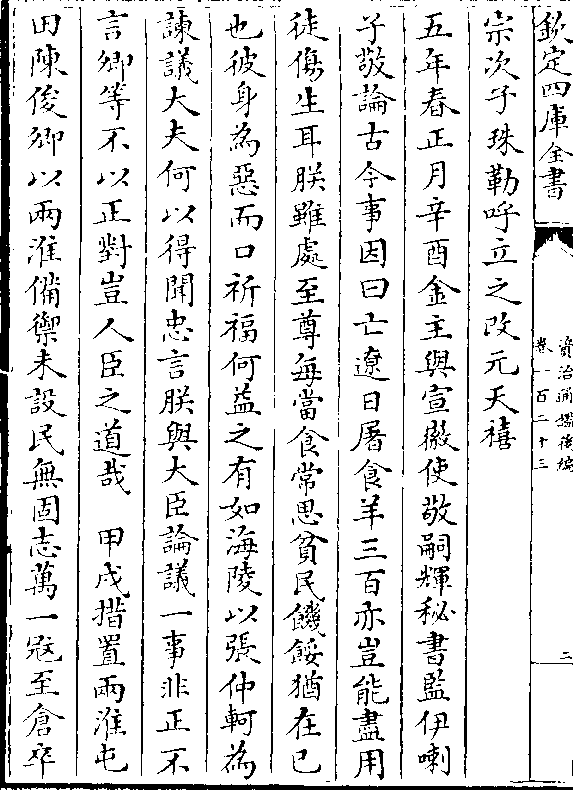 欽定四庫全書
資治通鑑後編
卷一百二十三
三
宗次子珠勒呼立之改元天禧
五年春正月辛酉金主與宣徽使敬嗣輝秘書監伊喇
子敬論古今事因曰亡遼日屠食羊三百亦豈能盡用
徒傷生耳朕雖處至尊每當食常思貧民饑餒猶在已
也彼身為惡而口祈福何益之有如海陵以張仲軻為
諫議大夫何以得聞忠言朕與大臣論議一事非正不
言卿等不以正對豈人臣之道哉　甲戌措置兩淮屯
田陳俊卿以兩淮備禦未設民無固志萬一寇至倉卒